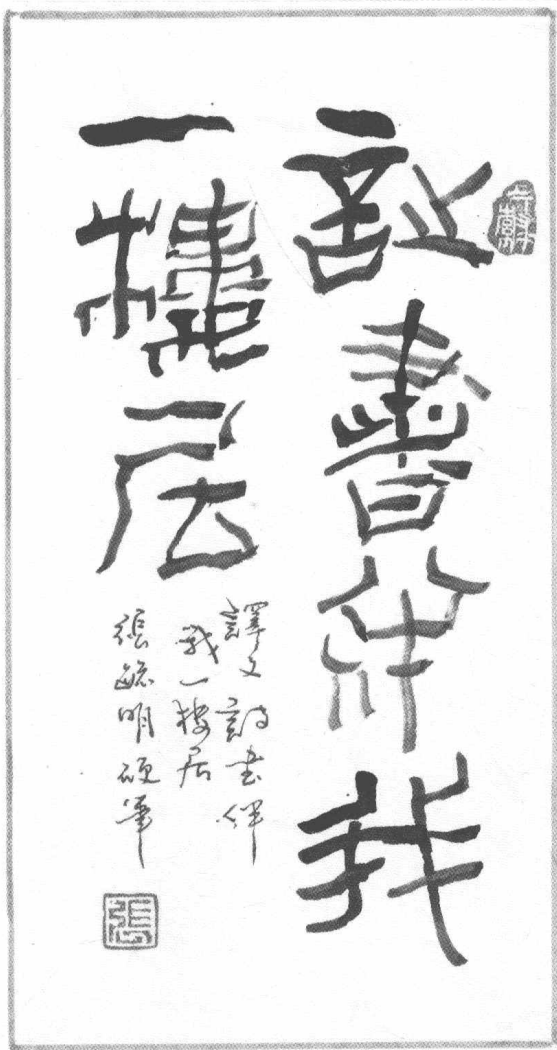 詩書伴我
一樓居
譯文 詩书伴
我一楼居
張毓明硬筆
張